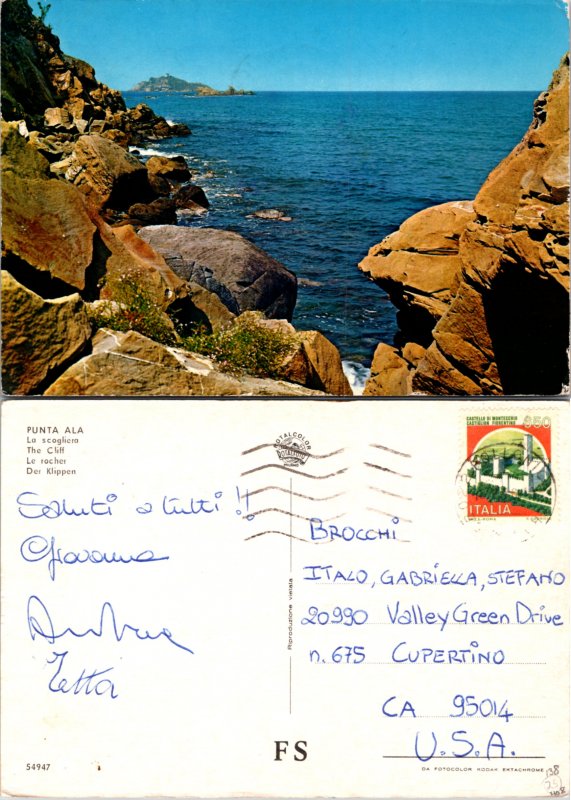 PUNTA ALA
La scogliera
The Cliff
Le rocher
Der Klippen
TOTALCOLOR
CASTELLO DI MONTECCHIO
CASTIGLION FIORENTINO
650
ITALIA
Saluti a tutti!!
Giovanna
Andrea
Tetta
Riproduzione vietata
BROCCHI
ITALO, GABRIELLA, STEFANO
20990 Valley Green Drive
n. 675 CUPERTINO
CA 95014
U.S.A.
54947
FS
DA FOTOCOLOR KODAK EKTACHROME